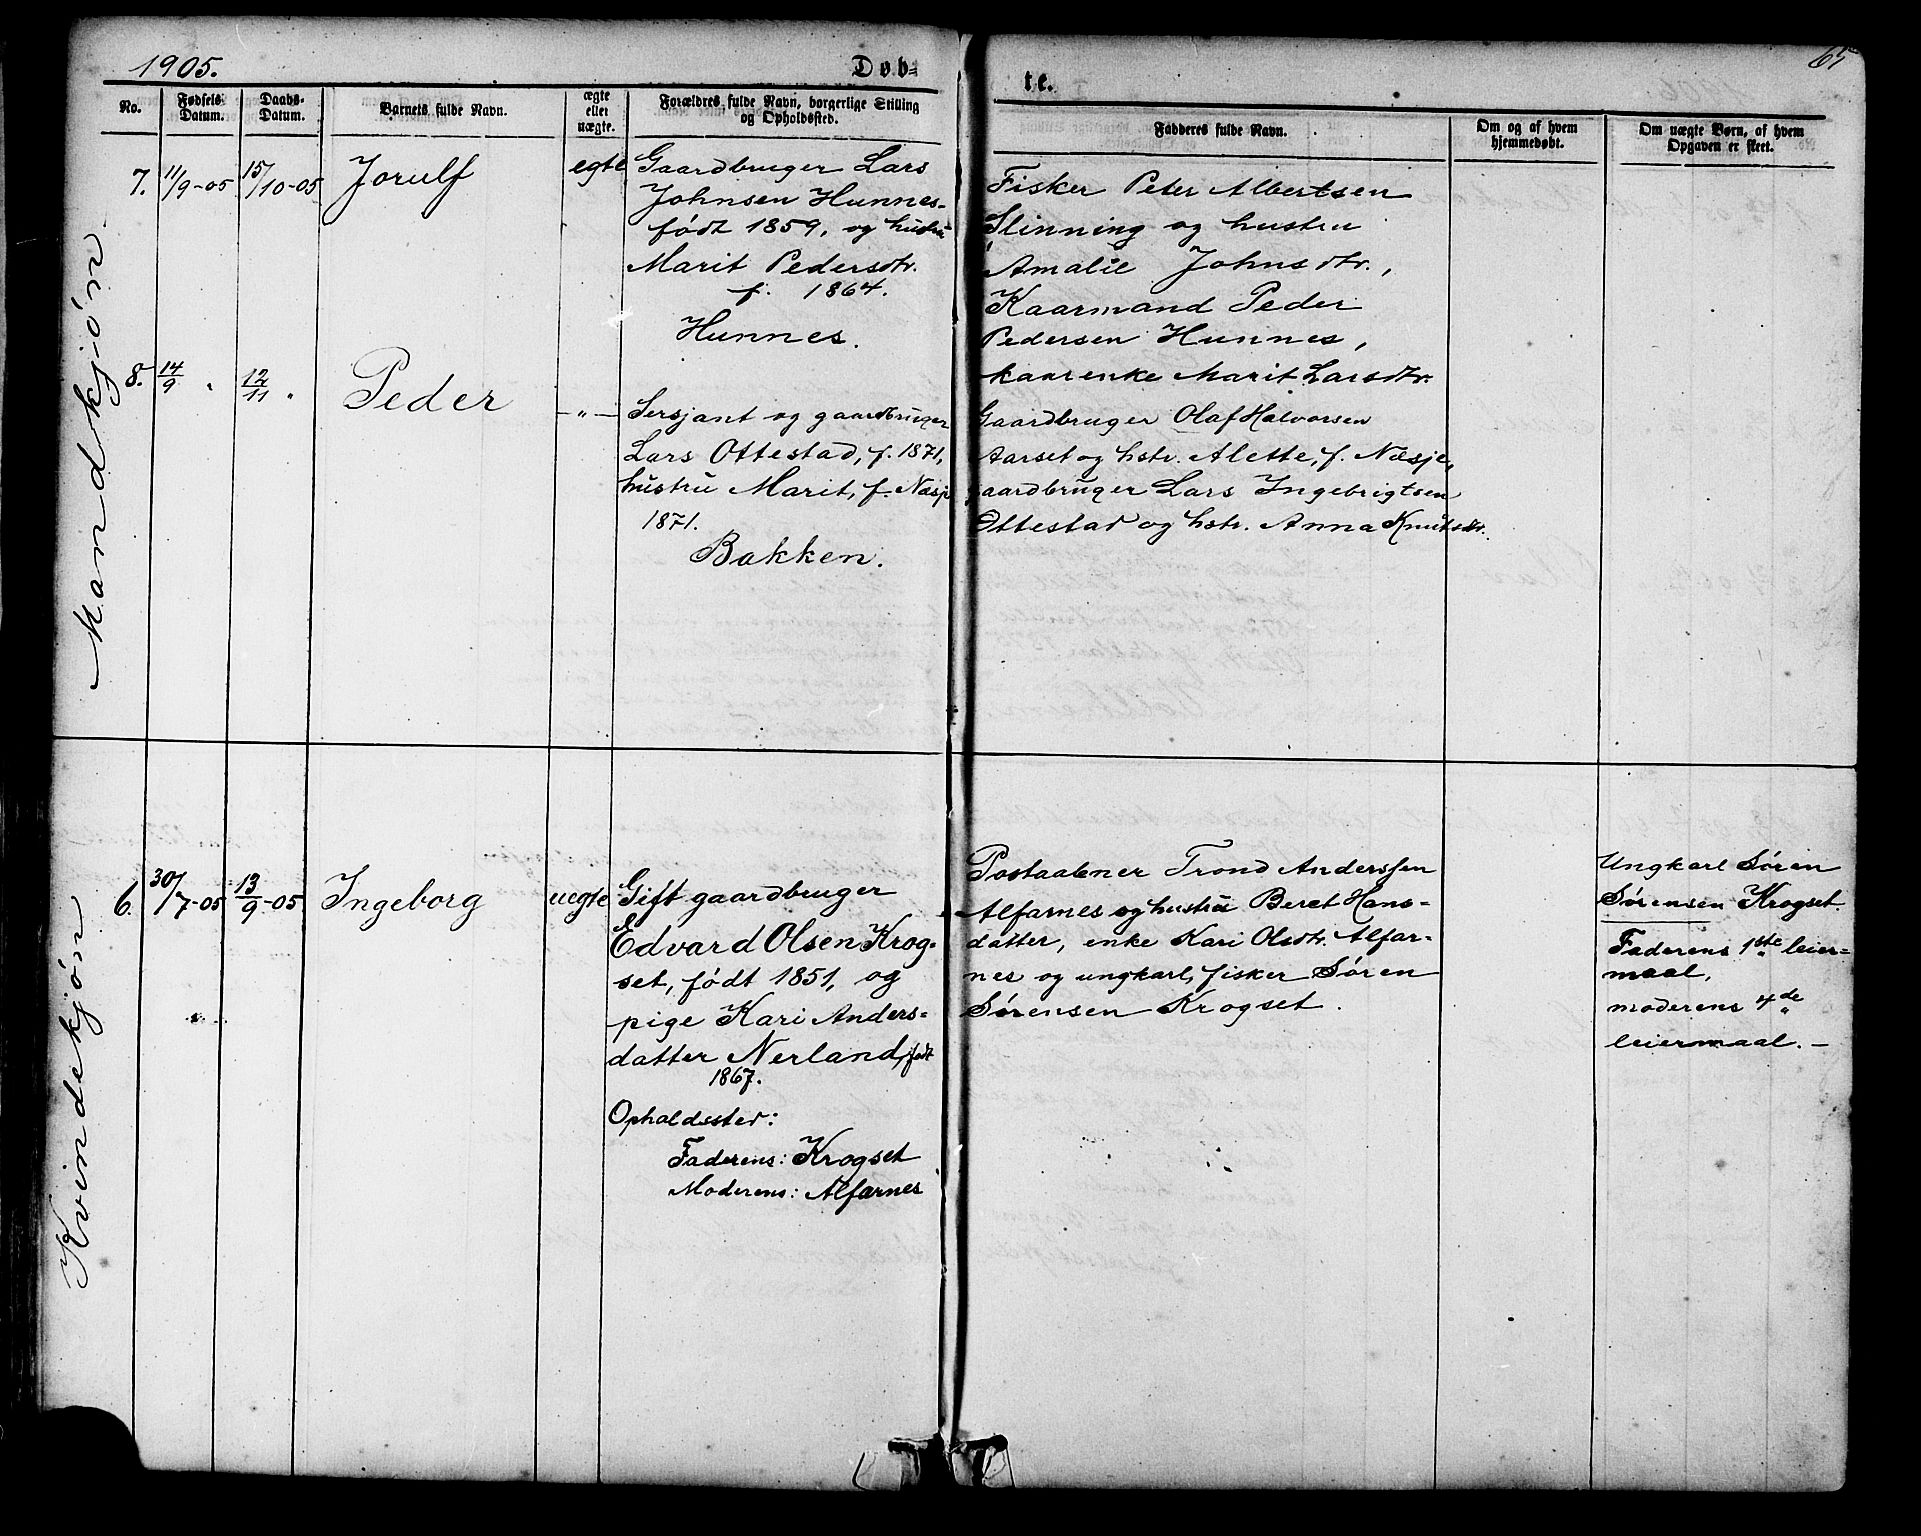 1905.
Døb=
te.
65
No.
Fødsels-
Datum.
Daabs-
Datum.
Barnets fulde Navn.
ægte
eller
uægte.
Forældres fulde Navn, borgerlige Stilling
og Opholdssted.
Fadderes fulde Navn.
Om og af hvem
hjemmedøbt.
Om uægte Børn, af hvem
Opgaven er skeet.
Mandkjøn.
7. 11/9-05 15/10-05 Jorulf egte
Gaardbruger Lars
Johnsen Hunnes-
født 1859, og hustru
Marit Pedersdtr.
f. 1864.
Hunnes.
Fisker Peter Albertsen
Slinning og hustru
Amalie Johnsdtr.,
Kaarmand Peder
Pedersen Hunnes,
kaarenke Marit Larsdtr.
8. 14/9 " 12/11 " Peder -"-
Sersjant og gaardbruger
Lars Ottestad, f. 1871,
hustru Marit, f. Næsje
1871.
Bakken.
Gaardbruger Olaf Halvorsen
Aarset og hstr. Alette, f. Næsje,
gaardbruger Lars Ingebrigtsen
Ottestad og hstr. Anna Knutsdtr.
Kvindekjøn
6. 30/7-05 13/9-05 Ingeborg uegte
Gift gaardbruger
Edvard Olsen Krog-
set, født 1851, og
pige Kari Anders-
datter Nerland, født
1867.
Opholdssted:
Faderens: Krogset
Moderens: Alfarnes
Postaabner Trond Anderssen
Alfarnes og hustru Beret Hans-
datter, enke Kari Olsdtr. Alfar-
nes og ungkarl, fisker Søren
Sørensen Krogset.
Ungkarl Søren
Sørensen Krogset.
Faderens 1ste leier-
maal,
moderens 4de
leiermaal. -